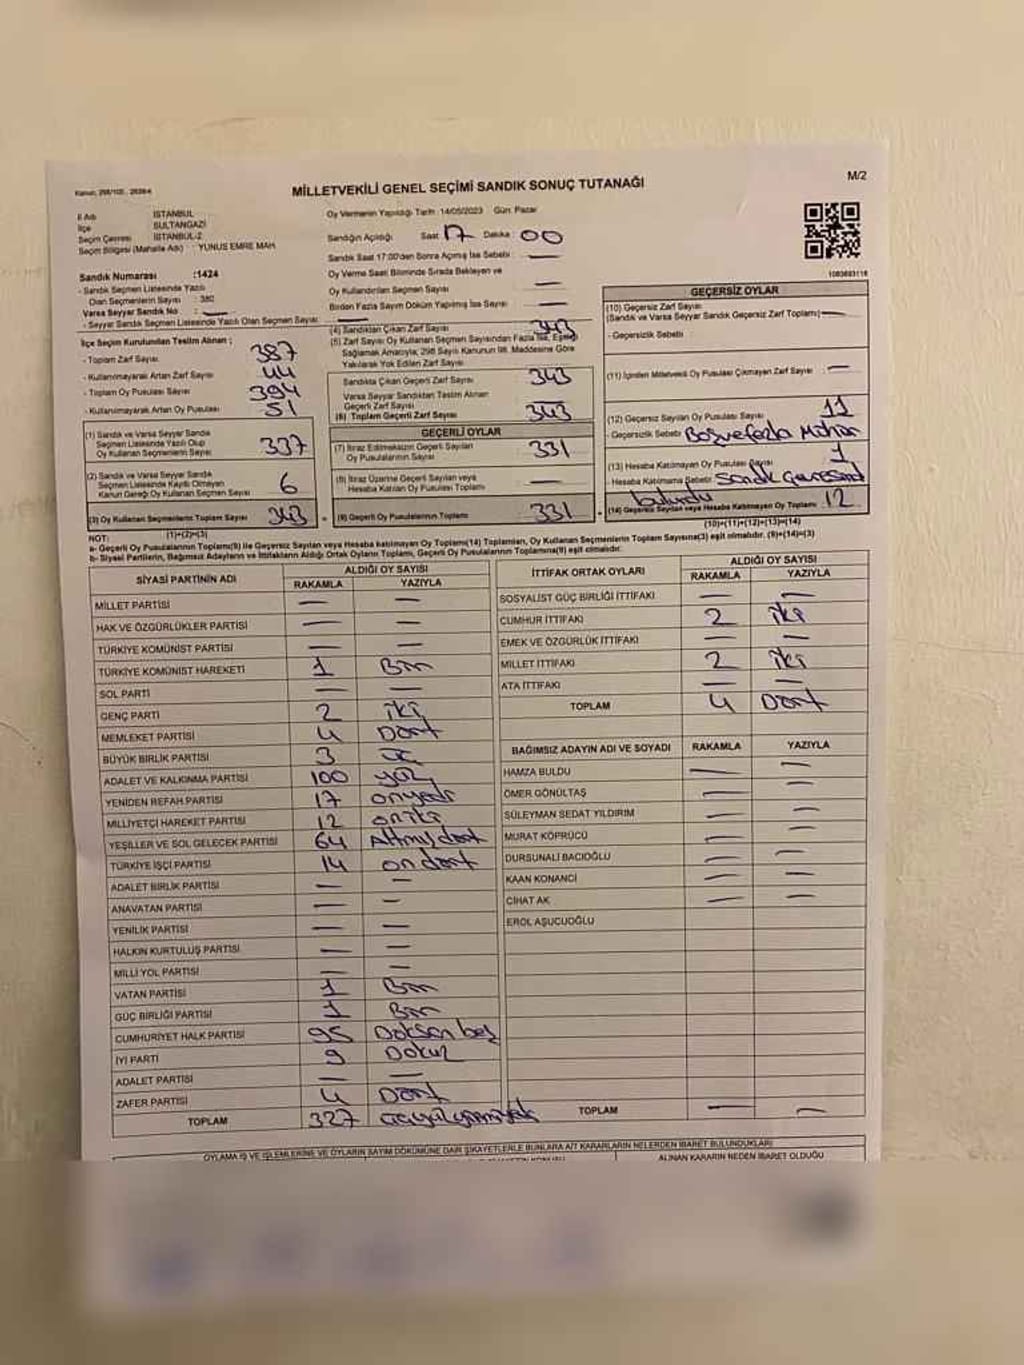 MİLLETVEKİLİ GENEL SEÇİMİ SANDIK SONUÇ TUTANAĞI
M/2
İl Adı : İSTANBUL
İlçe : SULTANGAZİ
Seçim Çevresi : İSTANBUL-2
Seçim Bölgesi (Mahalle Adı) : YUNUS EMRE MAH.
Sandık Numarası :1424
- Sandık Seçmen Listesinde Yazılı
Olan Seçmenlerin Sayısı : 380
Varsa Seyyar Sandık No : —
- Seyyar Sandık Seçmen Listesinde Yazılı Olan Seçmen Sayısı: —
Oy Vermenin Yapıldığı Tarih :14/05/2023 Gün: Pazar
Sandığın Açıldığı Saat 17 Dakika : 00
Sandık Saat 17:00'den Sonra Açılmış İse Sebebi : —
Oy Verme Saati Bitiminde Sırada Bekleyen ve
Oy Kullandırılan Seçmen Sayısı —
Birden Fazla Sayım Döküm Yapılmış İse Sayısı : —
1083693116
İlçe Seçim Kurulundan Teslim Alınan ;
- Toplam Zarf Sayısı 387
- Kullanılmayarak Artan Zarf Sayısı 44
- Toplam Oy Pusulası Sayısı 394
- Kullanılmayarak Artan Oy Pusulası 51
(1) Sandık ve Varsa Seyyar Sandık
Seçmen Listesinde Yazılı Olup
Oy Kullanan Seçmenlerin Sayısı 337
(2) Sandık ve Varsa Seyyar Sandık
Seçmen Listesinde Kayıtlı Olmayan
Kanun Gereği Oy Kullanan Seçmen Sayısı 6
(3) Oy Kullanan Seçmenlerin Toplam Sayısı 343
(1)+(2)=(3)
(4) Sandıktan Çıkan Zarf Sayısı 343
(5) Zarf Sayısı Oy Kullanan Seçmen Sayısından Fazla İse, Eşitliği
Sağlamak Amacıyla; 298 Sayılı Kanunun 98. Maddesine Göre
Yakılarak Yok Edilen Zarf Sayısı
Sandıkta Çıkan Geçerli Zarf Sayısı 343
Varsa Seyyar Sandıktan Teslim Alınan
Geçerli Zarf Sayısı —
(6) Toplam Geçerli Zarf Sayısı 343
GEÇERLİ OYLAR
(7) İtiraz Edilmeksizin Geçerli Sayılan
Oy Pusulalarının Sayısı 331
(8) İtiraz Üzerine Geçerli Sayılan veya
Hesaba Katılan Oy Pusulası Toplamı —
(9) Geçerli Oy Pusulalarının Toplamı 331
GEÇERSİZ OYLAR
(10) Geçersiz Zarf Sayısı
(Sandık ve Varsa Seyyar Sandık Geçersiz Zarf Toplamı) —
- Geçersizlik Sebebi :
(11) İçinden Milletvekili Oy Pusulası Çıkmayan Zarf Sayısı : —
(12) Geçersiz Sayılan Oy Pusulası Sayısı : 11
- Geçersizlik Sebebi Boş ve fazla Mühür
(13) Hesaba Katılmayan Oy Pusulası Sayısı 1
- Hesaba Katılmama Sebebi : Sandık Çevresind
bulundu
(14) Geçersiz Sayılan veya Hesaba Katılmayan Oy Toplamı 12
(10)+(11)+(12)+(13)=(14)
NOT:
a- Geçerli Oy Pusulalarının Toplamı(9) ile Geçersiz Sayılan veya Hesaba katılmayan Oy Toplamı(14) Toplamları, Oy Kullanan Seçmenlerin Toplam Sayısına(3) eşit olmalıdır. (9)+(14)=(3)
b- Siyasi Partilerin, Bağımsız Adayların ve İttifakların Aldığı Ortak Oyların Toplamı, Geçerli Oy Pusulalarının Toplamına(9) eşit olmalıdır.
SİYASİ PARTİNİN ADI ALDIĞI OY SAYISI
RAKAMLA YAZIYLA
MİLLET PARTİSİ — —
HAK VE ÖZGÜRLÜKLER PARTİSİ — —
TÜRKİYE KOMÜNİST PARTİSİ — —
TÜRKİYE KOMÜNİST HAREKETİ 1 Bir
SOL PARTİ — —
GENÇ PARTİ 2 iki
MEMLEKET PARTİSİ 4 Dört
BÜYÜK BİRLİK PARTİSİ 3 üç
ADALET VE KALKINMA PARTİSİ 100 yüz
YENİDEN REFAH PARTİSİ 17 onyedi
MİLLİYETÇİ HAREKET PARTİSİ 12 oniki
YEŞİLLER VE SOL GELECEK PARTİSİ 64 Altmış dört
TÜRKİYE İŞÇİ PARTİSİ 14 on dört
ADALET BİRLİK PARTİSİ — —
ANAVATAN PARTİSİ — —
YENİLİK PARTİSİ — —
HALKIN KURTULUŞ PARTİSİ — —
MİLLİ YOL PARTİSİ — —
VATAN PARTİSİ 1 Bir
GÜÇ BİRLİĞİ PARTİSİ 1 Bir
CUMHURİYET HALK PARTİSİ 95 Doksan beş
İYİ PARTİ 9 Dokuz
ADALET PARTİSİ — —
ZAFER PARTİSİ 4 Dört
TOPLAM 327
İTTİFAK ORTAK OYLARI ALDIĞI OY SAYISI
RAKAMLA YAZIYLA
SOSYALİST GÜÇ BİRLİĞİ İTTİFAKI — —
CUMHUR İTTİFAKI 2 iki
EMEK VE ÖZGÜRLÜK İTTİFAKI — —
MİLLET İTTİFAKI 2 iki
ATA İTTİFAKI — —
TOPLAM 4 Dört
BAĞIMSIZ ADAYIN ADI VE SOYADI RAKAMLA YAZIYLA
HAMZA BULDU — —
ÖMER GÖNÜLTAŞ — —
SÜLEYMAN SEDAT YILDIRIM — —
MURAT KÖPRÜCÜ — —
DURSUNALİ BACIOĞLU — —
KAAN KONANCİ — —
CİHAT AK — —
EROL AŞUCUOĞLU
TOPLAM — —
OYLAMA İŞ VE İŞLEMLERİNE VE OYLARIN SAYIM DÖKÜMÜNE DAİR ŞİKAYETLERLE BUNLARA AİT KARARLARIN NELERDEN İBARET BULUNDUKLARI
ALINAN KARARIN NEDEN İBARET OLDUĞU